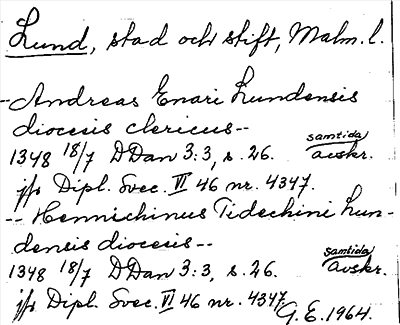 Lund, stad och stift, Malm. l.
--Andreas Enari Lundensis
diocesis clericus--
1348 18/7 DDan 3:3, s. 26. samtida avskr.
jfr Dipl. Svec. VI 46 nr. 4347.
-- Hennichinus Tidechini Lun-
densis diocesis--
1348 18/7 DDan 3:3, s. 26. samtida avskr.
jfr Dipl. Svec. VI 46 nr. 4347
G. E. 1964.